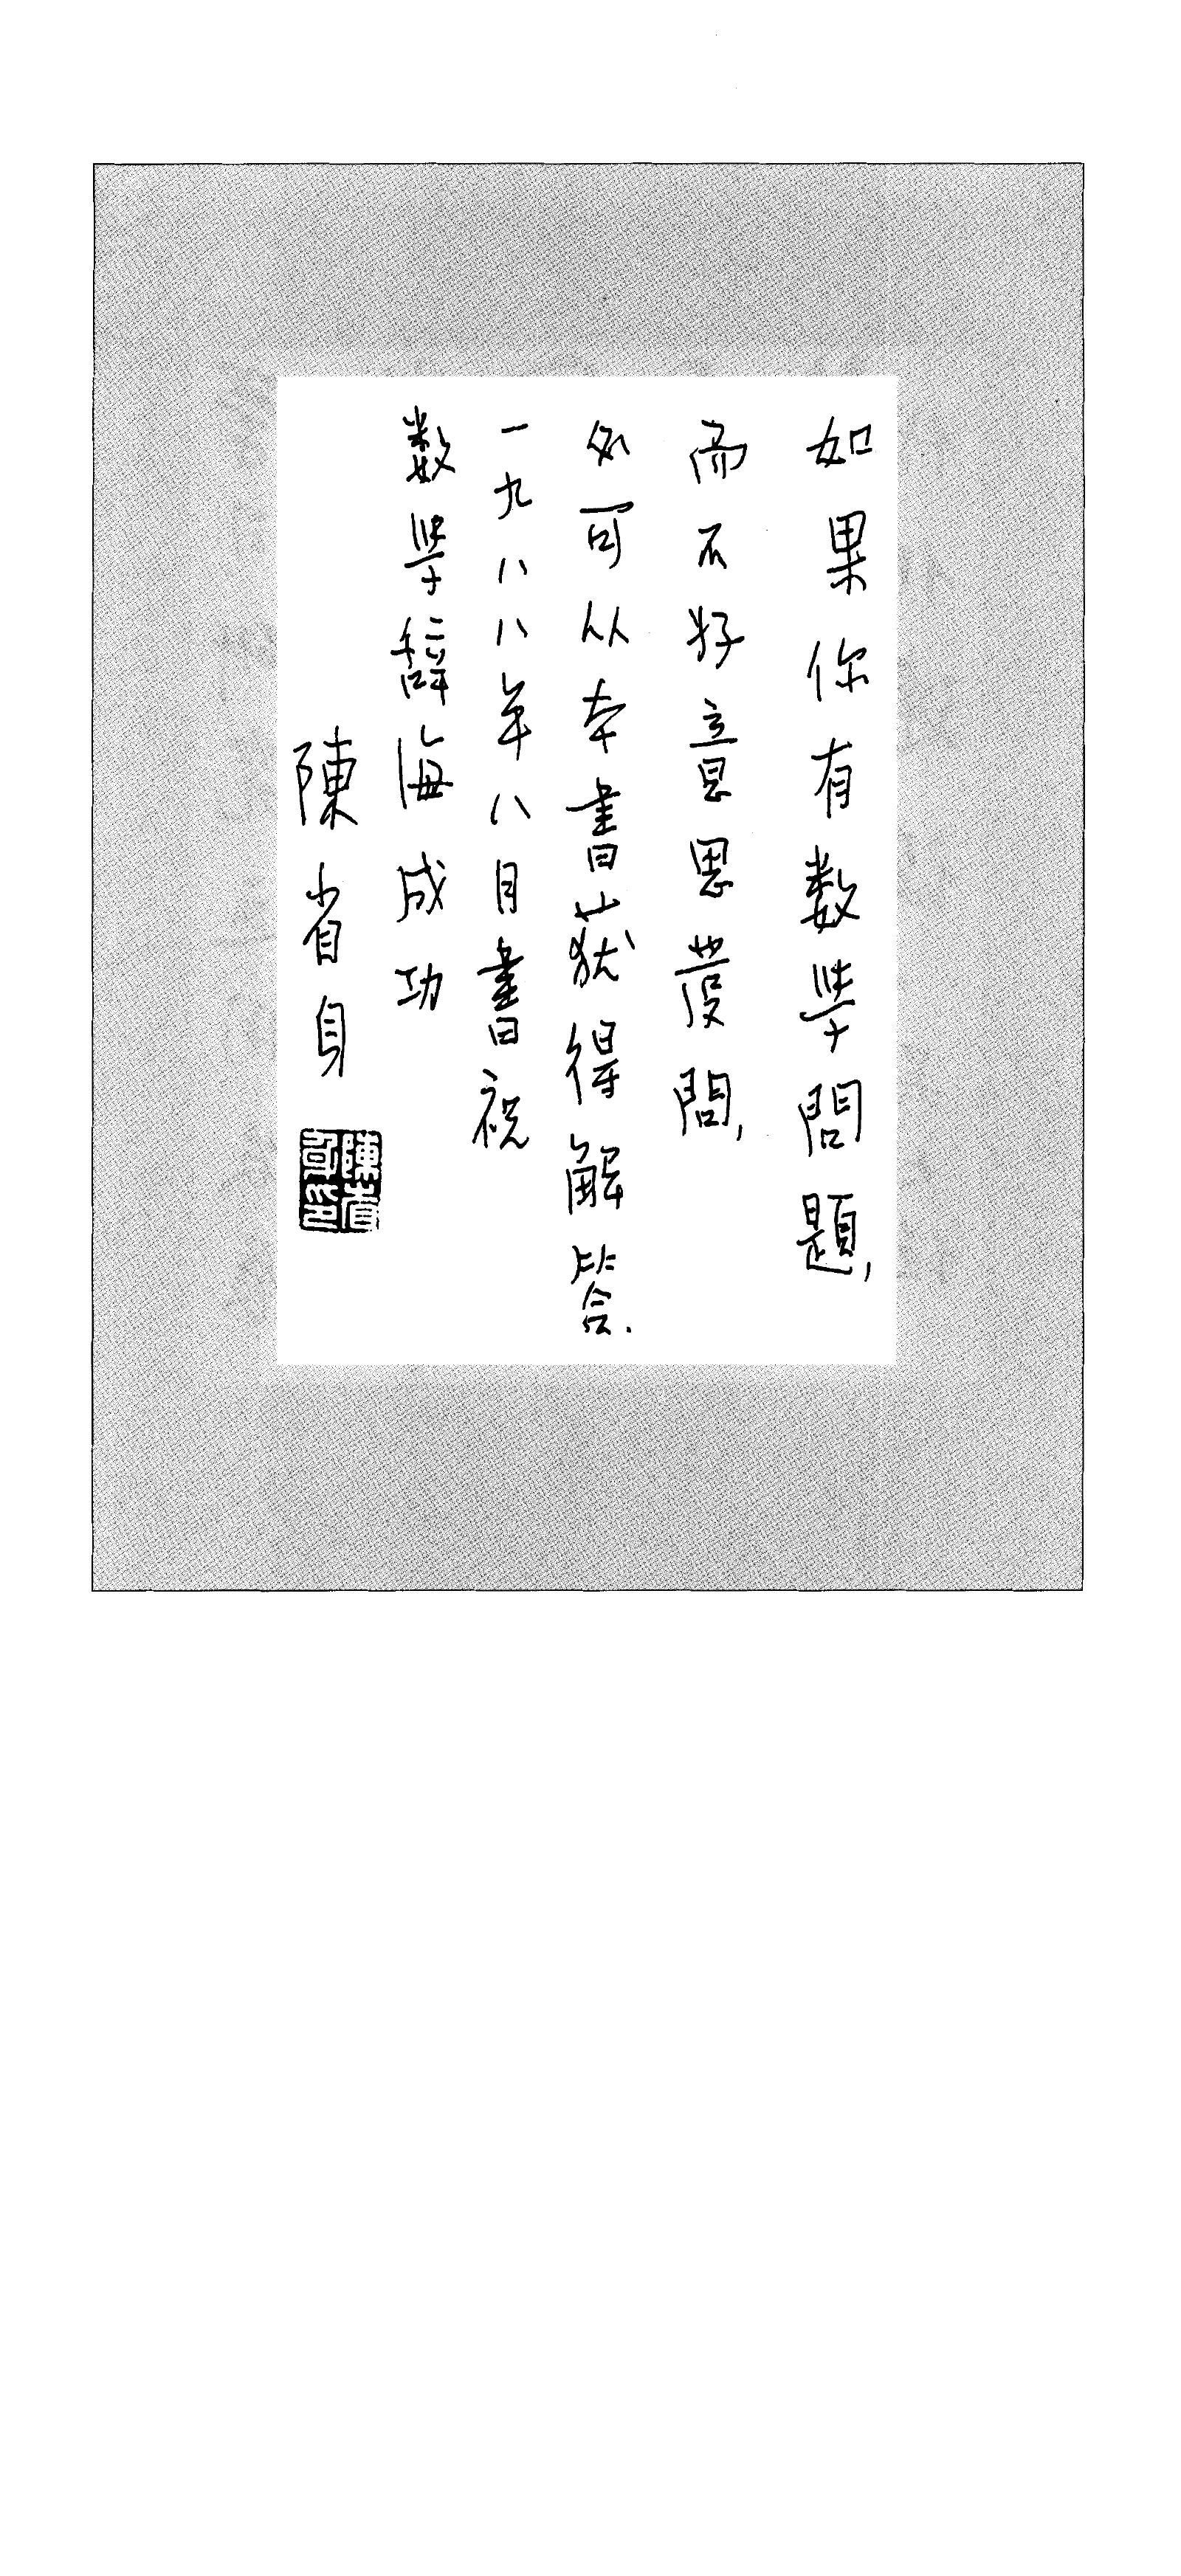 如果你有数学問題,
而不好意思發問,
必可从本書获得解答.
一九八八年八月書祝
数学辞海成功
陳省身
陳省身印